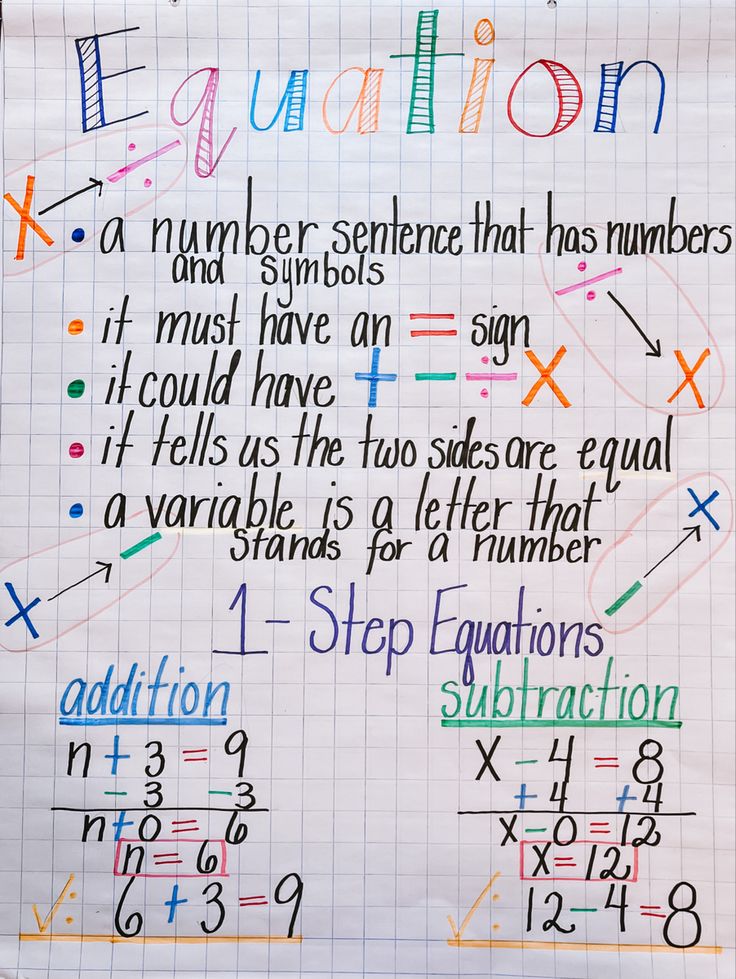 Equation
X → ÷
• a number sentence that has numbers
and symbols
÷ → X
• it must have an = sign
• it could have + - ÷ X
• it tells us the two sides are equal
• a variable is a letter that
stands for a number
X → -
- → X
1-Step Equations
addition
n + 3 = 9
- 3 -3
n+0 = 6
n = 6
✓: 6 + 3 = 9
subtraction
X - 4 = 8
+ 4 +4
x-0 = 12
X=12
✓: 12-4=8